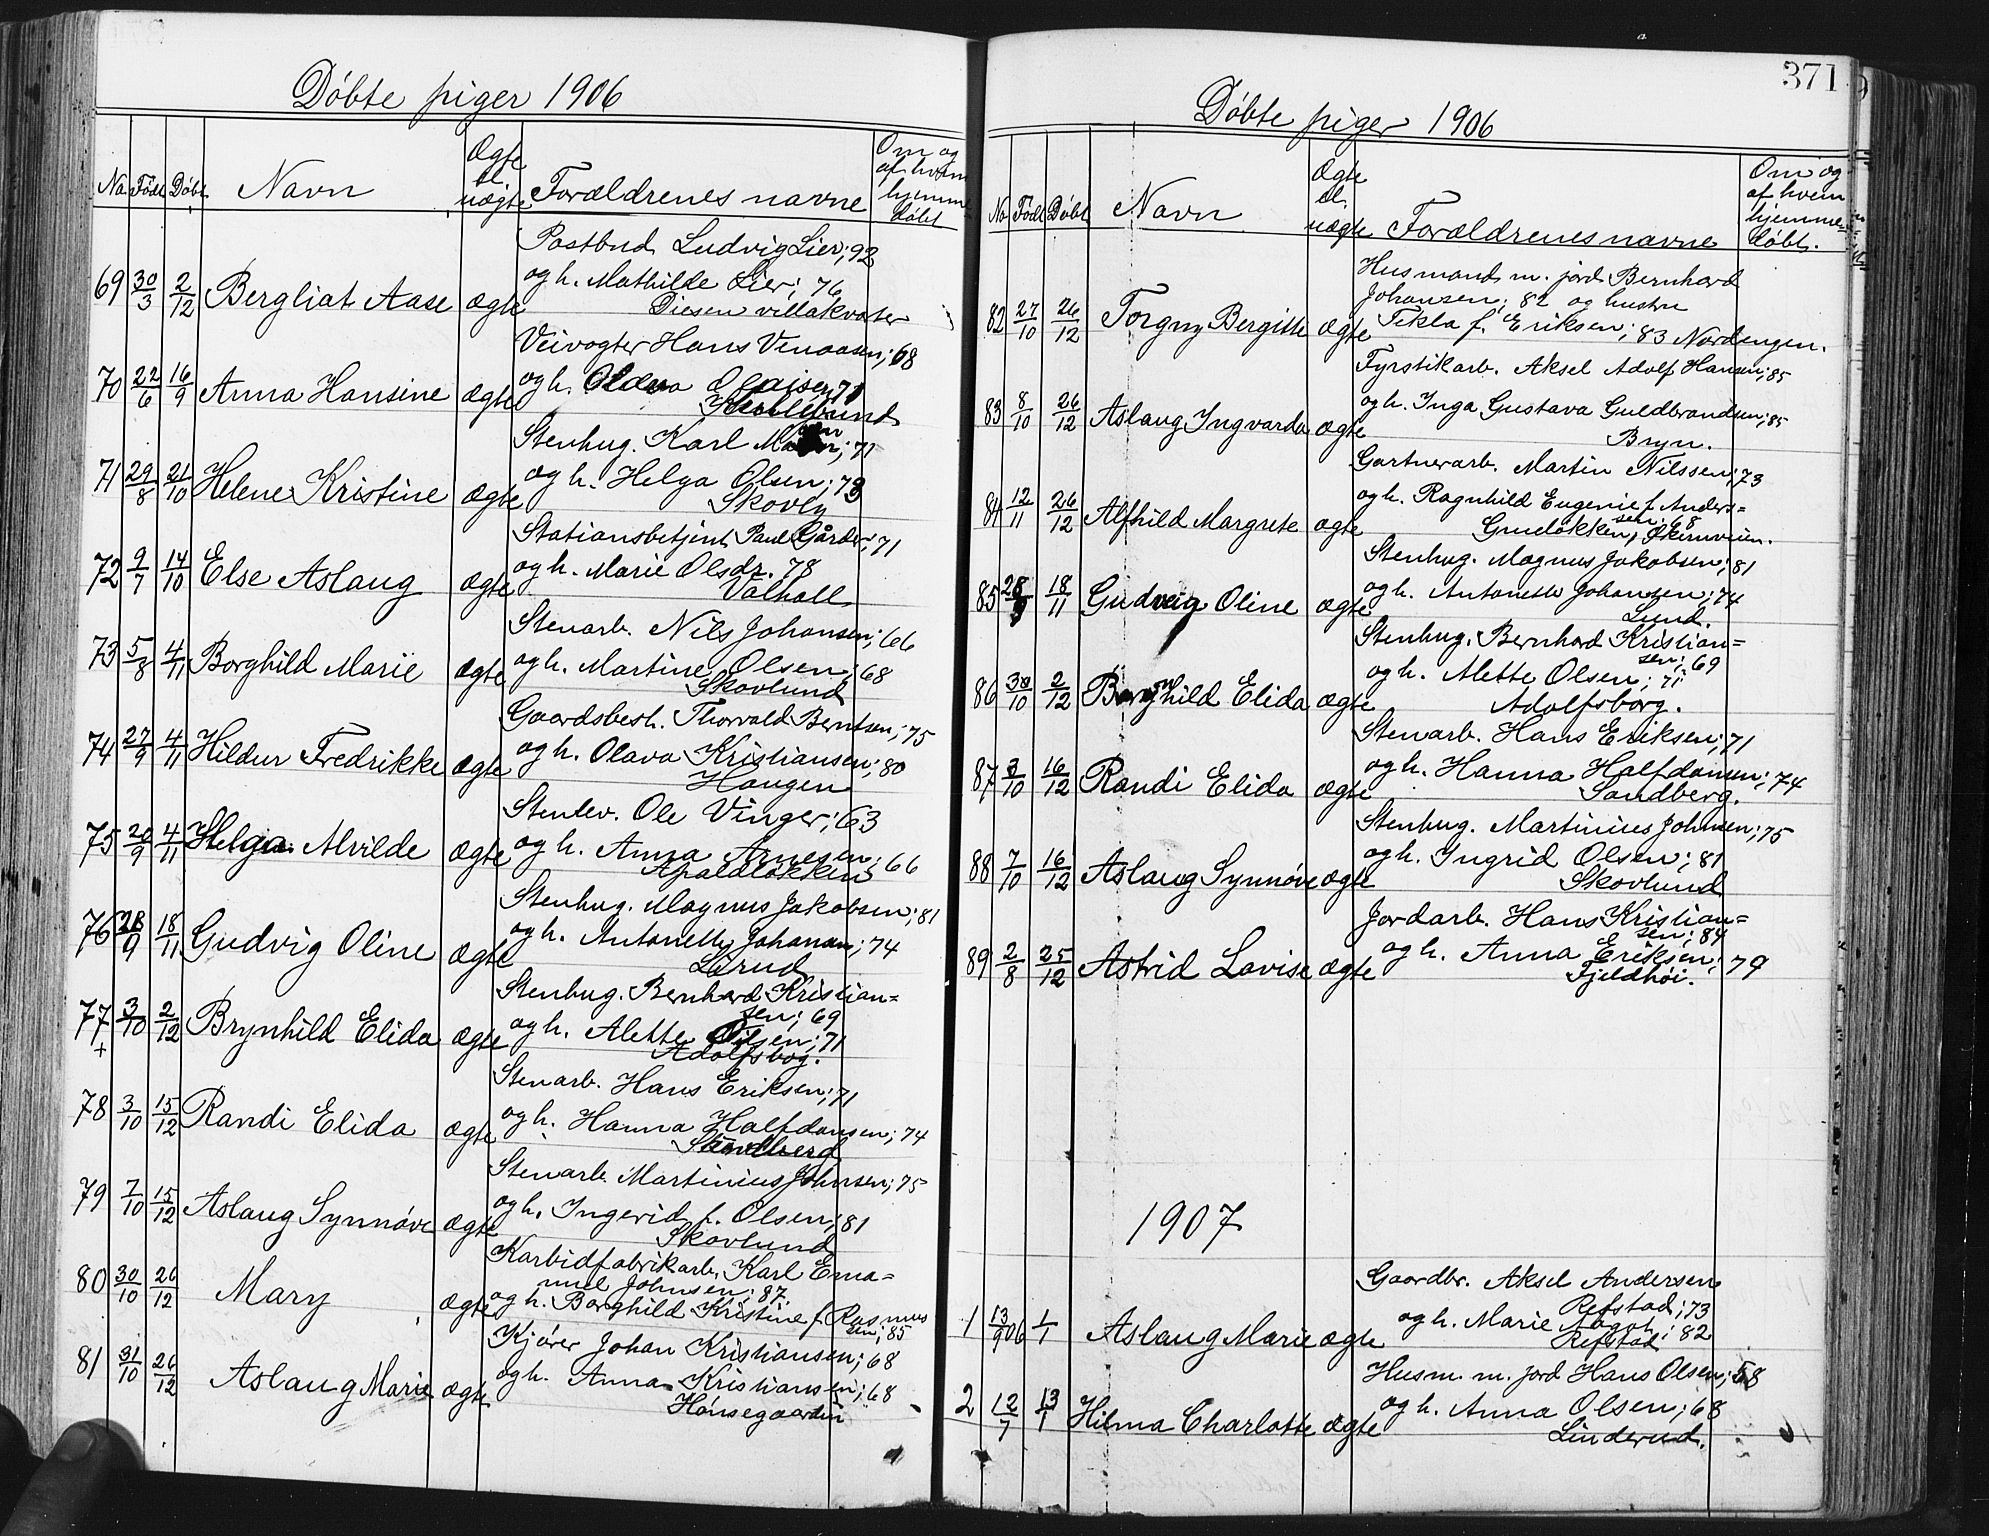 Döbte piger 1906
No Född Döbt Navn Ægte el. uægte Forældrenes navne Om og af hvem hjemme döbt
69 30/3 2/12 Bergliat Aase ægte Postbud Ludvig Lier; 92
og h. Mathilde Lier; 76
Diesen villakvarter
70 22/6 16/9 Anna Hansine ægte Veivogter Hans Venaasen; 68
og h. Oldeva Olaisen; 71
71 29/8 21/10 Helene Kristine ægte Stenhug. Karl
71
og h. Helga Olsen; 73
Skovly
72 9/7 14/10 Else Aslaug ægte Stationsbetjent Paul Gårder; 71
og h. Marie Olsdr. 78
Valhall
73 5/8 4/11 Borghild Marie ægte Stenarb. Nils Johansen; 66
og h. Martine Olsen; 68
Skovlund
74 27/9 4/11 Hildur Fredrikke ægte Gaardsbest. Thorvald Berntsen; 75
og h. Olava Kristiansen; 80
Haugen
75 20/9 4/11 Helga Alvilde ægte Stenlev. Ole Vinger; 63
og h. Anna Arnesen; 66
Apaldlökken
76 28/9 18/11 Gudvig Oline ægte Stenhug. Magnus Jakobsen; 81
og h. Antonette Johansen; 74
Lund
77 3/10 2/12 Brynhild Elida ægte Stenhug. Bernhard Kristian=
+
sen; 69
og h. Alette Olsen; 71
Adolfsborg.
78 3/10 15/12 Randi Elida ægte Stenarb. Hans Eriksen; 71
og h. Hanna Halfdansen; 74
Sandberg
79 7/10 15/12 Aslaug Synnöve ægte Stenarb. Martinius Johnsen; 75
og h. Ingerid f. Olsen; 81
Skovlund
80 30/10 26/12 Mary ægte Karbidfabrikarb. Karl Ema=
nuel Johnsen; 87.
og h. Borghild Kristine f. Rasmus
sen; 85
81 31/10 26/12 Aslaug Marie ægte Kjörer Johan Kristiansen; 68
og h. Anna Kristiansen; 68
Hönsegaarden
371
Döbte piger 1906
No Född Döbt Navn Ægte el. uægte Forældrenes navne Om og af hvem hjemme= döbt.
82 27/10 26/12 Torgny Bergitte ægte Husmand m. jord Bernhard
Johansen; 82 og hustru
Tekla f. Eriksen; 83 Nordengen.
83 8/10 26/12 Aslaug Ingvarda ægte Fyrstikarb. Aksel Adolf Hansen; 85
og h. Inga Gustava Guldbrandsen; 85
Bryn.
84 12/11 26/12 Alfhild Margrete ægte Gartnerarb. Martin Nilssen; 73
og h. Ragnhild Eugenie f. Anders=
sen; 68
Grudlökken, Økernveien.
85 28/9 18/11 Gudveig Oline ægte Stenhug. Magnus Jakobsen; 81
og h. Antonette Johansen; 74
Lund.
86 30/10 2/12 Brynhild Elida ægte Stenhug. Bernhard Kristian=
sen; 69
og h. Alette Olsen; 71
Adolfsborg.
87 3/10 16/12 Randi Elida ægte Stenarb. Hans Eriksen; 71
og h. Hanna Halfdansen; 74
Sandberg.
88 7/10 16/12 Aslaug Synnöve ægte Stenhug. Martinius Johnsen; 75
og h. Ingrid Olsen; 81
Skovlund
89 2/8 25/12 Astrid Lovise ægte Jordarb. Hans Kristian=
sen; 84
og h. Anna Eriksen; 79
Fjeldhöi.
1907
1 13/9 06 1/1 Aslaug Marie ægte Gaardbr. Aksel Andersen
Refstad; 73
og h. Marie Aagot; 82
Refstad
2 12/7 13/1 Hilma Charlotte ægte Husm. m. jord Hans Olsen; 68
og h. Anna Olsen; 68
Linderud.